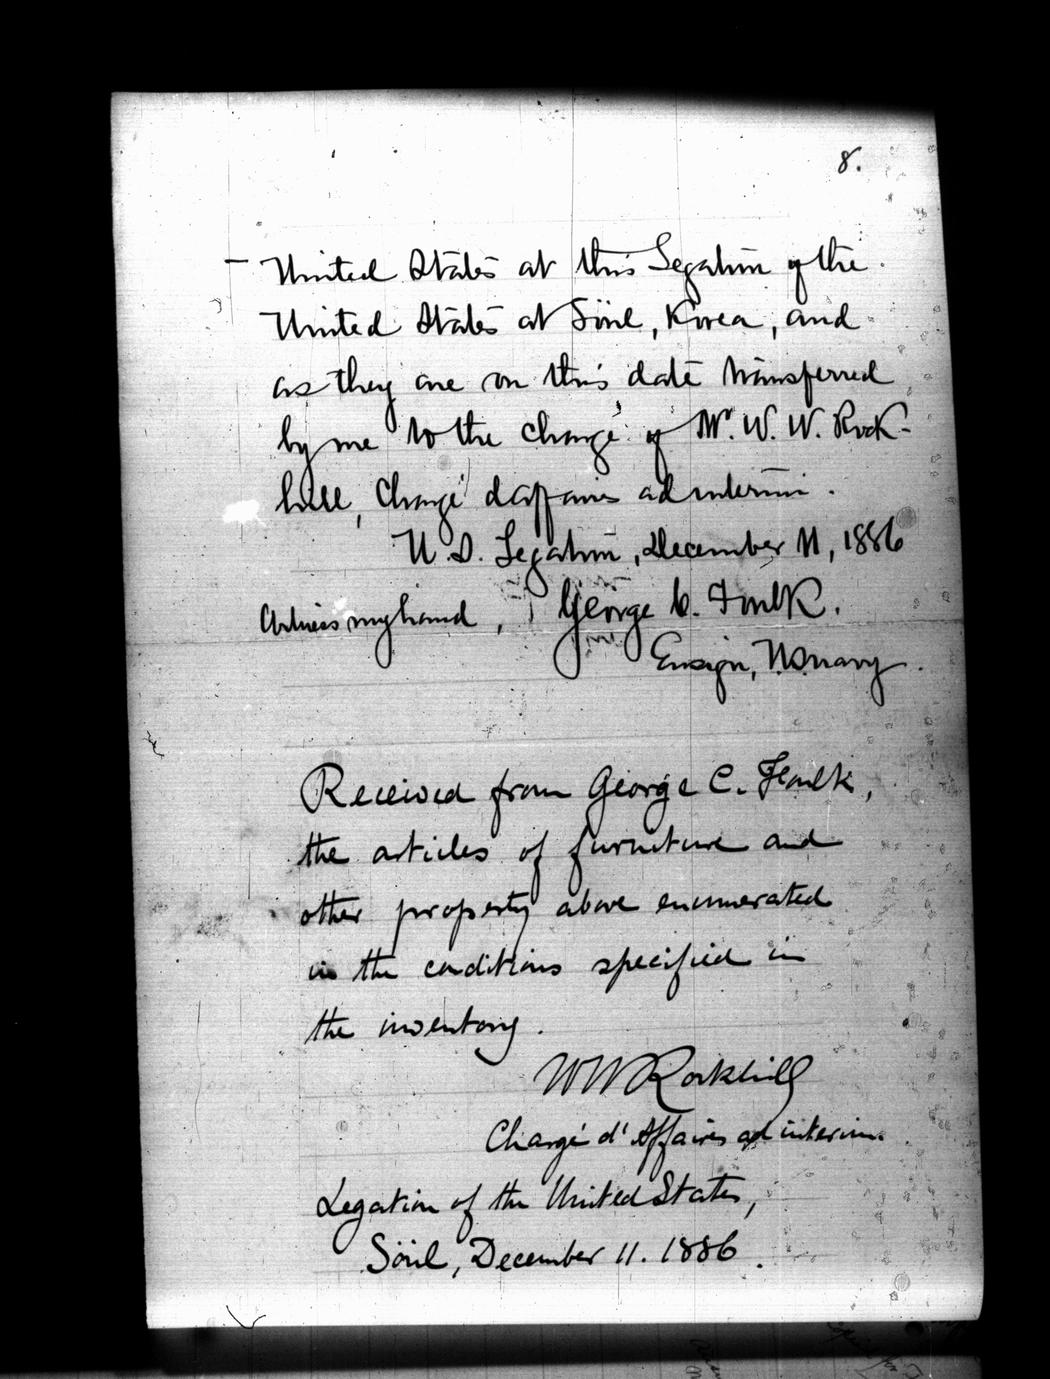 8.
United States at this Legation of the
United States at Söul, Korea, and
as they are on this date transferred
by me to the charge of Mr. W. W. Rock-
hill, Chargé d'affaires ad interim.
U.S. Legation, December 11, 1886
Witness my hand, George C. Foulk.
Ensign, U.S. Navy.
Received from George C. Foulk,
the articles of furniture and
other property above enumerated
in the conditions specified in
the inventory.
W W Rockhill
Chargé d'Affaires ad interim.
Legation of the United States,
Söul, December 11. 1886.